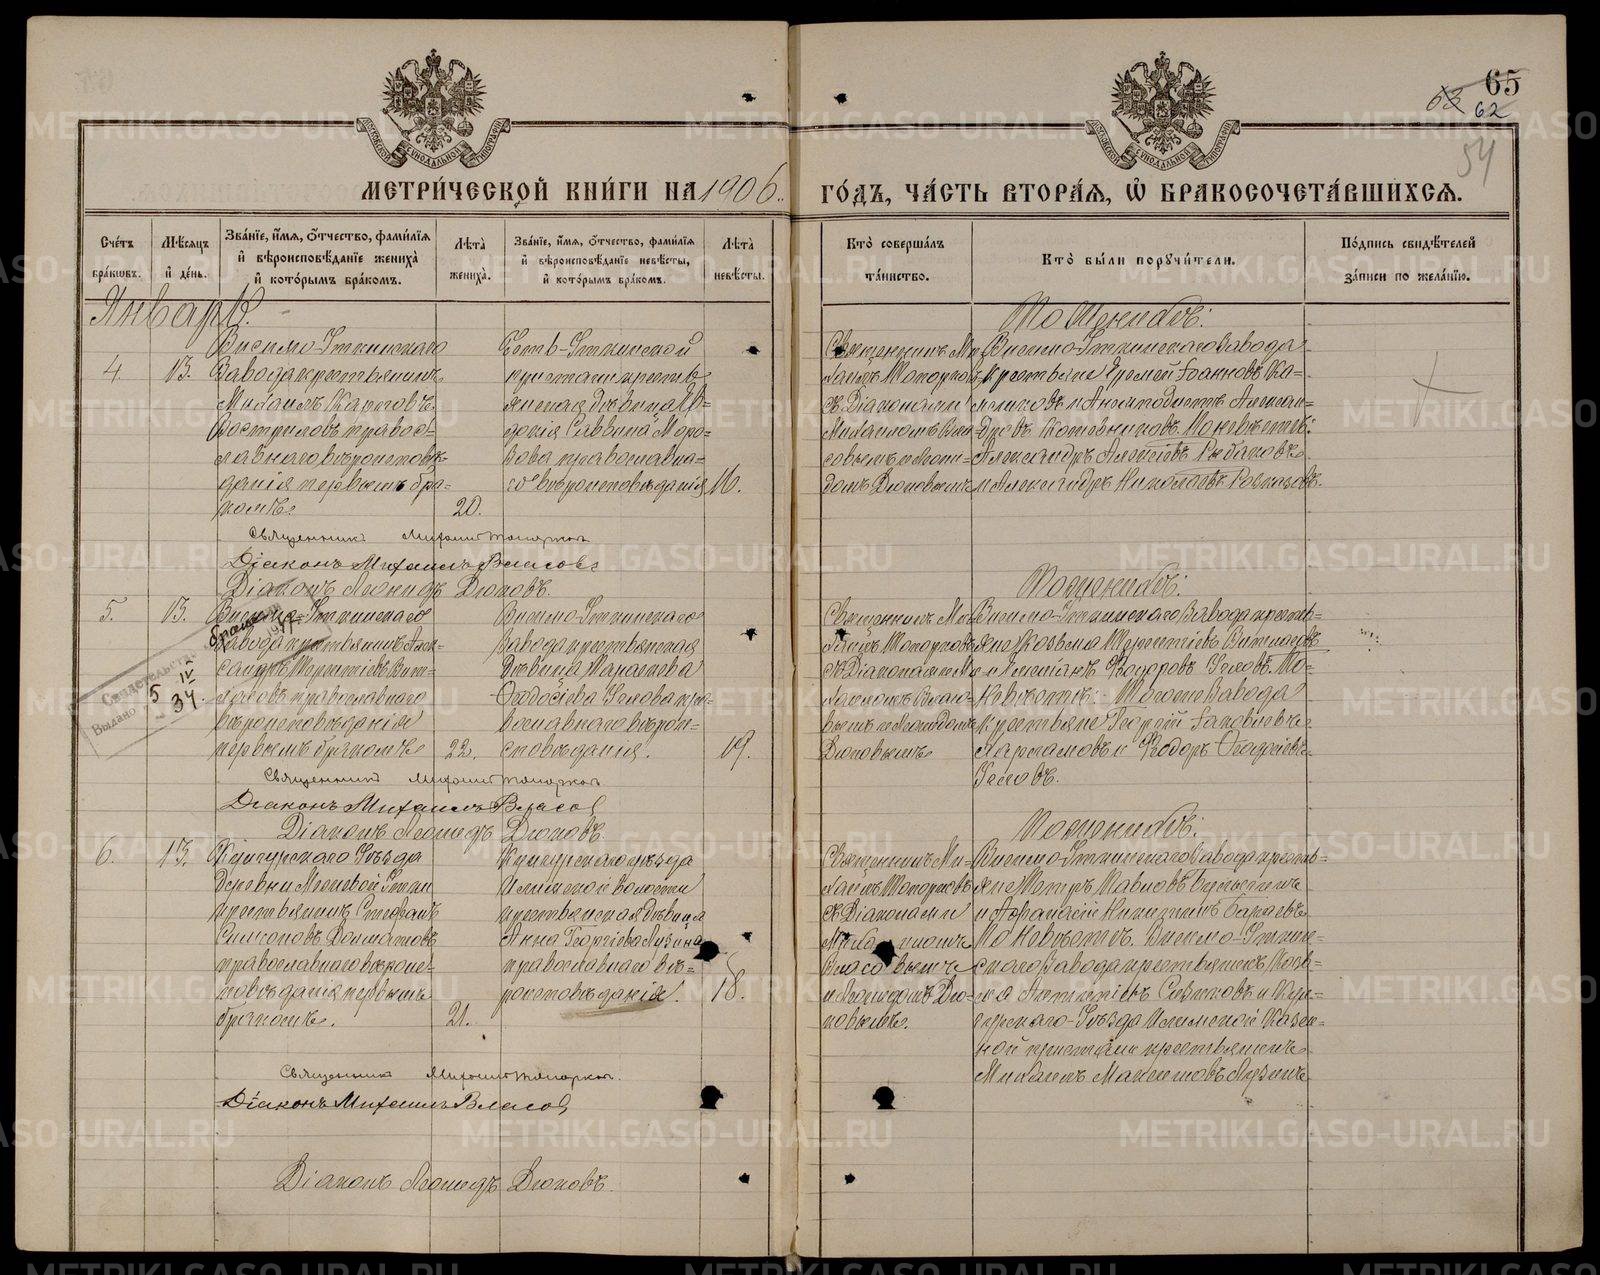 65
63
62
54
МЕТРИ́ЧЕСКОЙ КНИ́ГИ НА 1906
ГО́ДЪ, ЧА́СТЬ ВТОРА́Я, Ѡ҆ БРАКОСОЧЕТА́ВШИХСЯ.
Сче́тъ бра́кѡвъ.
Мѣ́сяцъ и҆ де́нь.
Зва́нїе, и҆́мя, о҆́тчество, фами́лїя и҆ вѣроисповѣ́данїе жениха̀ и҆ кото́рымъ бра́комъ.
Лѣ́та жениха̀.
Зва́нїе, и҆́мя, о҆́тчество, фами́лїя и҆ вѣроисповѣ́данїе невѣ́сты, и҆ кото́рымъ бра́комъ.
Лѣ́та невѣ́сты.
Кто̀ соверша́лъ та́инство.
Кто̀ бы́ли порꙋчи́тели.
По́дпись свидѣ́телей за́писи по жела́нїю.
Январь.
4.
13.
Висимо-Уткинскаго
Завода крестьянинъ
Михаилъ
Востряковъ правос-
лавнаго вѣроисповѣ-
данія первымъ бра-
комъ.
20.
Усть-Уткинской
пристани кресть-
янская дѣвица Ев-
докія Саввина Моро-
зова православна-
го вѣроисповѣданія
16.
Священникъ Ми-
хаилъ Топорковъ
съ Діаконами
Михаиломъ Вла-
совымъ и Леони-
домъ Дюковымъ
По женихѣ:
Висимо-Уткинскаго Завода
крестьяне Еремей Іоанновъ Ка-
Алексан-
дровъ Котельниковъ. По невѣстѣ:
Александръ Алексѣевъ Рыбаковъ
и Александръ Николаевъ
Священникъ Михаилъ Топорков
Діаконъ Михаилъ Власовъ
Діаконъ Леонидъ Дюковъ.
5.
13.
Висимо-Уткинскаго
Завода крестьянинъ Алек-
сандръ Терентіевъ
православнаго
вѣроисповѣданія
первымъ бракомъ
22.
Висимо-Уткинскаго
Завода крестьянская
дѣвица
Ѳеодосіева Усова пра-
вославнаго вѣрои-
сповѣданія.
19.
Священникъ Ми-
хаилъ Топорковъ
съ Діаконами Ми-
хаиломъ Власо-
вымъ и Леонидомъ
Дюковымъ
По женихѣ:
Висимо-Уткинскаго Завода кресть-
яне Козьма Терентіевъ
Ѳедоровъ Усовъ. По
невѣстѣ: Того же Завода
крестьяне Георгій Іаковлевъ
и Ѳедоръ
Усовъ.
Свидѣтельство о браке
Выдано
5 IV 34
Священникъ Михаилъ Топорков
Діаконъ Михаилъ Власов
Діаконъ Леонидъ Дюковъ.
6.
13.
Кунгурскаго Уѣзда
Деревни
крестьянинъ Стефанъ
Симоновъ Долматовъ
православнаго вѣроис-
повѣданія первымъ
бракомъ.
21.
Кунгурскаго уѣзда
Илимской волости
крестьянская дѣвица
Анна Георгіева Лузина
православнаго вѣ-
роисповѣданія.
18.
Священникъ Ми-
хаилъ Топорковъ
съ Діаконами
Михаиломъ
Власовымъ
и Леонидомъ Дю-
ковымъ.
По женихѣ:
Висимо-Уткинскаго Завода кресть-
яне Петръ Павловъ
и Аѳанасій Никитинъ
По невѣстѣ. Висимо-Уткин-
скаго Завода крестьянинъ
и Кун-
гурскаго Уѣзда Илимской Казен-
ной пристани крестьянинъ
Михаилъ Лузинъ
Священникъ Михаилъ Топорков.
Діаконъ Михаилъ Власов
Діаконъ Леонидъ Дюковъ.
METRIKI.GASO-URAL.RU